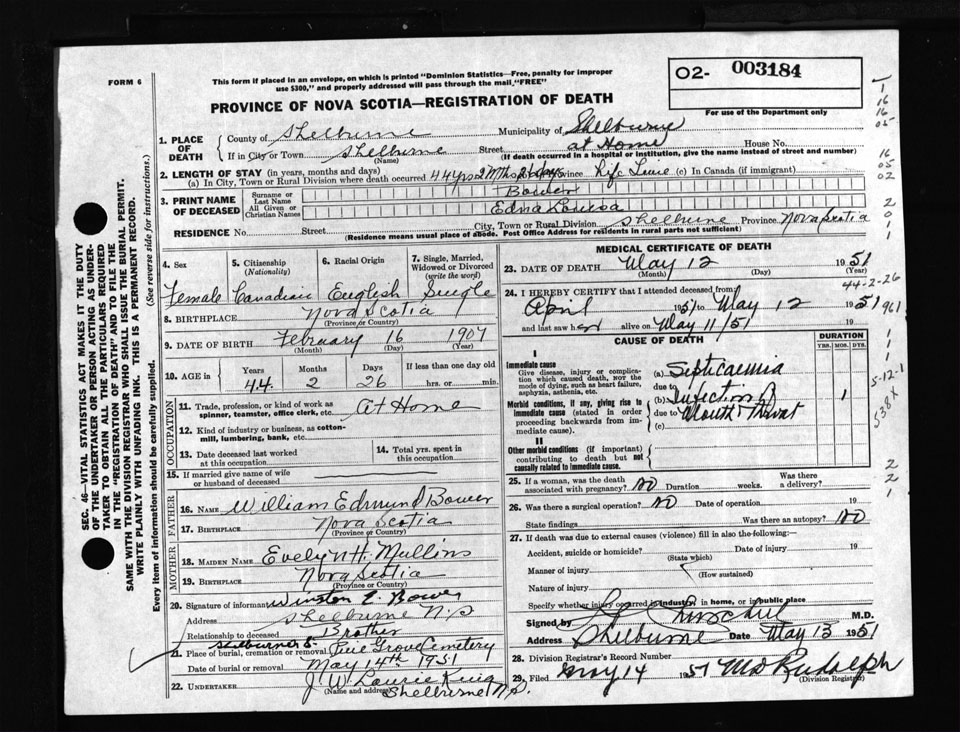 FORM 6
This form if placed in an envelope, on which is printed "Dominion Statistics—Free, penalty for improper
use $300," and properly addressed will pass through the mail, "FREE"
O2- 003184
For use of the Department only
PROVINCE OF NOVA SCOTIA—REGISTRATION OF DEATH
1. PLACE OF DEATH
County of Shelburne Municipality of Shelburne
If in City or Town Shelburne Street at Home House No.
(Name) (If death occurred in a hospital or institution, give the name instead of street and number)
2. LENGTH OF STAY (in years, months and days)
(a) In City, Town or Rural Division where death occurred 44 yrs 2 Mths Province Life Time (c) In Canada (if immigrant)
3. PRINT NAME OF DECEASED
Surname or Last Name Bower
All Given or Christian Names Edna Louisa
RESIDENCE No. Street City, Town or Rural Division Shelburne Province Nova Scotia
(Residence means usual place of abode. Post Office Address for residents in rural parts not sufficient)
4. Sex 5. Citizenship (Nationality) 6. Racial Origin 7. Single, Married, Widowed or Divorced (write the word)
Female Canadian English Single
8. BIRTHPLACE Nova Scotia
(Province or Country)
9. DATE OF BIRTH February 16 1907
(Month) (Day) (Year)
10. AGE in Years Months Days If less than one day old
44 2 26 hrs. or min.
OCCUPATION
11. Trade, profession, or kind of work as spinner, teamster, office clerk, etc. At Home
12. Kind of industry or business, as cotton-mill, lumbering, bank, etc.
13. Date deceased last worked at this occupation
14. Total yrs. spent in this occupation
15. If married give name of wife or husband of deceased
FATHER
16. Name William Edmund Bower
17. Birthplace Nova Scotia
(Province or Country)
MOTHER
18. MAIDEN NAME Evelyn H. Mullins
19. Birthplace Nova Scotia
(Province or Country)
20. Signature of informant Winston E. Bower
Address Shelburne N.S
Relationship to deceased Brother
21. Place of burial, cremation or removal Pine Grove Cemetery
Date of burial or removal May 14th 1951
22. UNDERTAKER J. W. Laurie King
(Name and address) Shelburne N.S.
MEDICAL CERTIFICATE OF DEATH
23. DATE OF DEATH May 12 1951
(Month) (Day) (Year)
44-2-26
24. I HEREBY CERTIFY that I attended deceased from
April 1951 to May 12 1951
961
and last saw her alive on May 11/51 19
CAUSE OF DEATH
DURATION
YRS. MOS. DYS.
I
Immediate cause
Give disease, injury or complication which caused death, NOT the mode of dying, such as heart failure, asphyxia, asthenia, etc.
(a) Septicaemia
due to
Morbid conditions, if any, giving rise to immediate cause (stated in order proceeding backwards from immediate cause).
(b) Infection of 1
due to Mouth & throat
(c)
II
Other morbid conditions (if important) contributing to death but not causally related to immediate cause.
25. If a woman, was the death associated with pregnancy? No Duration weeks. Was there a delivery?
26. Was there a surgical operation? No Date of operation 19
State findings Was there an autopsy? No
27. If death was due to external causes (violence) fill in also the following:—
Accident, suicide or homicide? Date of injury 19
(State which)
Manner of injury
(How sustained)
Nature of injury
Specify whether injury occurred in industry, in home, or in public place
Signed by M.D.
Address Shelburne Date May 13 1951
28. Division Registrar's Record Number
29. Filed May 14 1951 M D Rudolph
(Division Registrar)
SEC. 46—VITAL STATISTICS ACT MAKES IT THE DUTY
OF THE UNDERTAKER OR PERSON ACTING AS UNDER-
TAKER TO OBTAIN ALL THE PARTICULARS REQUIRED
IN THE "REGISTRATION OF DEATH" AND TO FILE THE
SAME WITH THE DIVISION REGISTRAR WHO SHALL ISSUE THE BURIAL PERMIT.
WRITE PLAINLY WITH UNFADING INK. THIS IS A PERMANENT RECORD.
Every item of information should be carefully supplied. (See reverse side for instructions.)
1
16
16
05
16
05
02
2
0
1
1
1
1
1
5-12-1
2
2
1